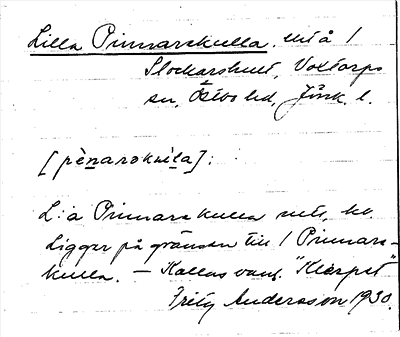 Lilla Pinnarekulla, utå 1
Slockarehult, Voxtorps
sn, Östbo hd, Jönk. l.
[pènarəkula]:
L:a Pinnarekulla
Ligger på gränsen till 1 Pinnare-
kulla. — Kallas vanl. "Klärpet"
Fritz Andersson 1930.